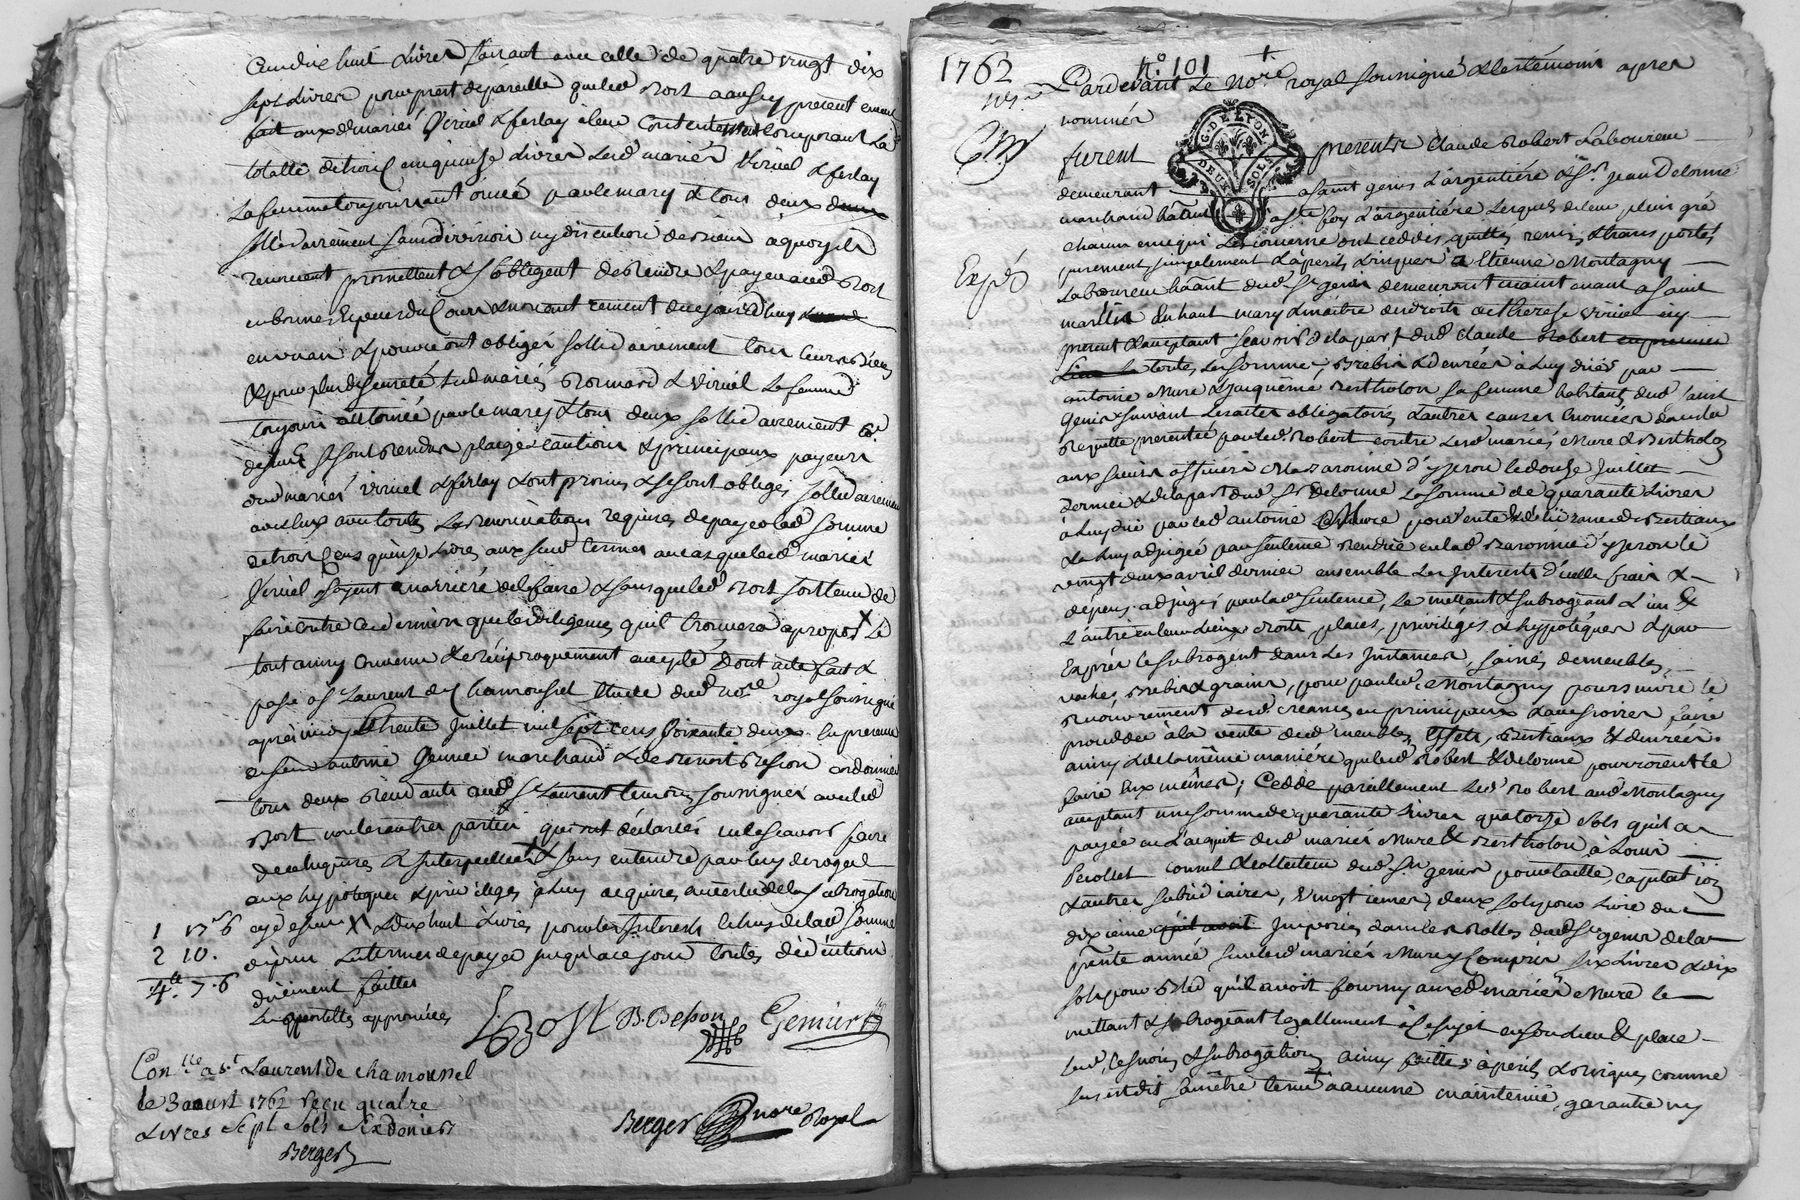 Cent dix huit Livres faisant avec celle de quatre vingt dix
sept Livres pour prest de pareille que led Bost a aussy presentement
fait auxd mariés Viricel & ferlay a leur Contentement Composant la
totalle de trois Cent quinse Livres Lesd mariés Viricel & ferlay
La femme toujours autorisée par le mary & tous deux
sollidairement sans division ny discution de biens a quoy ils
renoncent promettent & s'obligent de Rendre & payer aud Bost
en bonnes Especes du Cours en un an & pour ce ont obligés sollidairement tous leurs biens
& pour plus de seureté Lesd mariés & Viricel La femme
toujours autorisée par le mary & tous deux sollidairement
se sont Rendus pleiges cautions & principaux payeurs
desd mariés Viricel & ferlay & ont promis & se sont obligés sollidairement
avec Eux avec toutes Les Renonciations requises de payer lad somme
de trois Cens quinse Livres aux susd termes au cas que lesd mariés
Viricel soyent en arriere de le faire & sans que led Bost soit tenu de
faire contre ces derniers que les diligences qu'il trouvera a propos X Le
tout ainsy Convenu & Réciproquement accepté Dont acte fait &
passé a St Laurent de Chamousset Etude dud nore royal soussigné
apres midy le trente Juillet mil sept cens soixante deux En presence
de sieur antoine Gemier marchand & de Benoit Besson cordonnier
tous deux Residants aud St Laurent temoins soussignés avec led
Bost non les autres parties qui ont déclarés ne le scavoir faire
de ce Enquises & Interpellées & sans entendre par luy deroger
aux hypoteques & privileges a Luy acquises en vertu de la subrogation
X & dix huit Livres pour les Interests de lad somme
Le terme de payer jusqu'a ce jour toutes déductions
duement faittes
Les apostilles approuvées
1 17s 6
2 10.
4tt. 7. 6
Bost B. Besson Gemier
Conlle a st Laurent de chamousset
le 3 aoust 1762 reçu quatre
Livres sept sols six deniers
Berger
Berger nore Royal
1762 N° 101
Pardevant Le Nore royal soussigné & les temoins apres
nommés
furent presents Claude Robert Laboureur
demeurant a saint genis L'argentiere & Sr Jean Delorme
marchand habitant a Ste foy L'argentiere Lesquels de leur plein gré
chacun en ce qui Les concerne ont ceddés, quittés, remis & transportés
purement, simplement & a perils & risques a Etienne Montagny
Expé
Laboureur habitant dud St genis demeurant avant a saint
martin En haut mary & maitre des droits de therese Viricel icy
present & acceptant scavoir de la part dud Claude Robert en premier
Lieu toutes Les sommes, Brebis & denrées a Luy dües par
antoine Mure & Jacqueme Bertholon sa femme habitants dud saint
Genis suivant Les actes obligatoires & autres causes Enoncées dans la
Requette presentée par led Robert contre Lesd mariés Mure & Bertholon
aux sieurs officiers de la Baronnie d'yzeron le douse Juillet
dernier & de la part dud Sr Delorme La somme de quarante Livres
a Luy düe par led antoine Mure pour vente de Bestiaux
& a Luy adjugée par sentence Rendue en lad Baronnie d'yzeron le
vingt deux avril dernier ensemble Les Interests d'icelle frais &
dépens adjugés par lad sentence, Le mettant & subrogeant L'un &
L'autre en leurs Lieux droits, places, privileges & hypoteques & par
Exprès le subrogent dans Les Instances, saisies de meubles,
vaches, Brebis & grains, pour par led Montagny poursuivre le
Recouvrement desd creances en principaux & accessoires faire
procedder a la vente desd meubles, Effets, Bestiaux & denrées
ainsy & de la même maniere que lesd Robert & delorme pourroient le
faire Eux mêmes; Cedde pareillement Led Robert aud Montagny
acceptant une somme de quarante Livres quatorze sols qu'il a
payée en L'acquit desd mariés Mure & Bertholon a Louis
Perollet consul & collecteur dud St genis pour taille, capitation
& autres subsidiaires, vingtiemes, deux sols pour livre du
dixieme qu'il avoit Imposées dans les Rolles dud St genis de la
prente année sur lesd mariés Mure y Compris six Livres & dix
sols pour Bled qu'il avoit fourny auxd mariés Mure le
mettant & subrogeant Egallement a ce sujet en son Lieu & place
Lesd Cessions & subrogations ainsy faittes a perils & risques comme
sus est dit sans être tenu a aucune maintenüe, garantie ny
G. DE LYON
DEUX SOLS